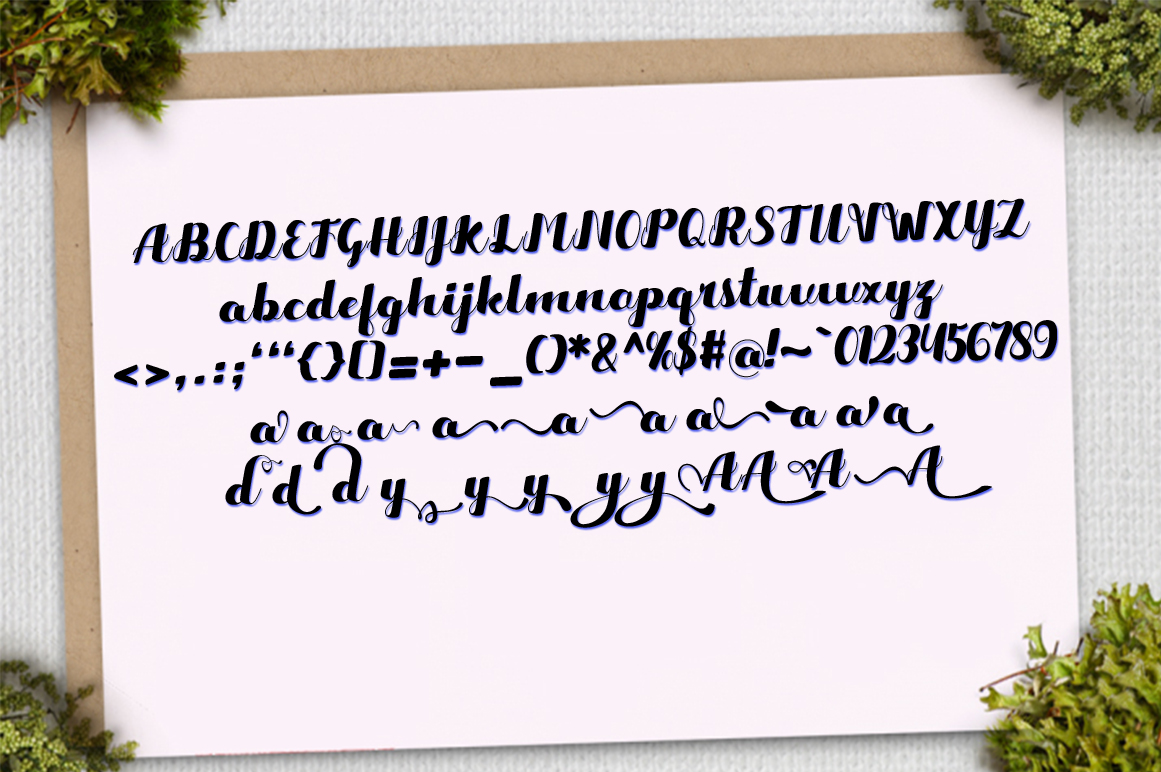 ABCDEFGHIJKLMNOPQRSTUVWXYZ
abcdefghijklmnopqrstuvwxyz
<>,.:;‘“{}[]=+-_()*&^%$#@!~`0123456789
a a a a a a a a a a
d d d y y y y y A A A A